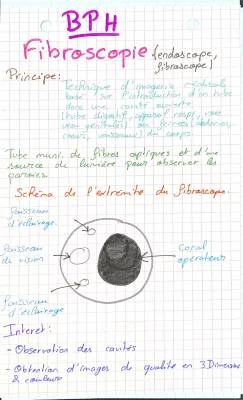 BPH
Fibroscopie. (endoscope, fibroscope)
Principe:
Technique d'imagerie médicale
basée sur l'introduction d'un tube
dans une cavité ouverte
(tube digestif, appareil resp,
génitales) ou fermée (abdomen,
du corps.
Tube muni de fibres optiques et d'une
source de lumière pour observer les
parois.
Schéma de l'extrémité du fibroscope.
faisceau
d'éclairage
faisceau
de vision
Canal
opérateur
faisceau
d'éclairage
Interet:
- Observation des cavités
- Obtention d'images de qualité en 3 Dimensions
& couleurs